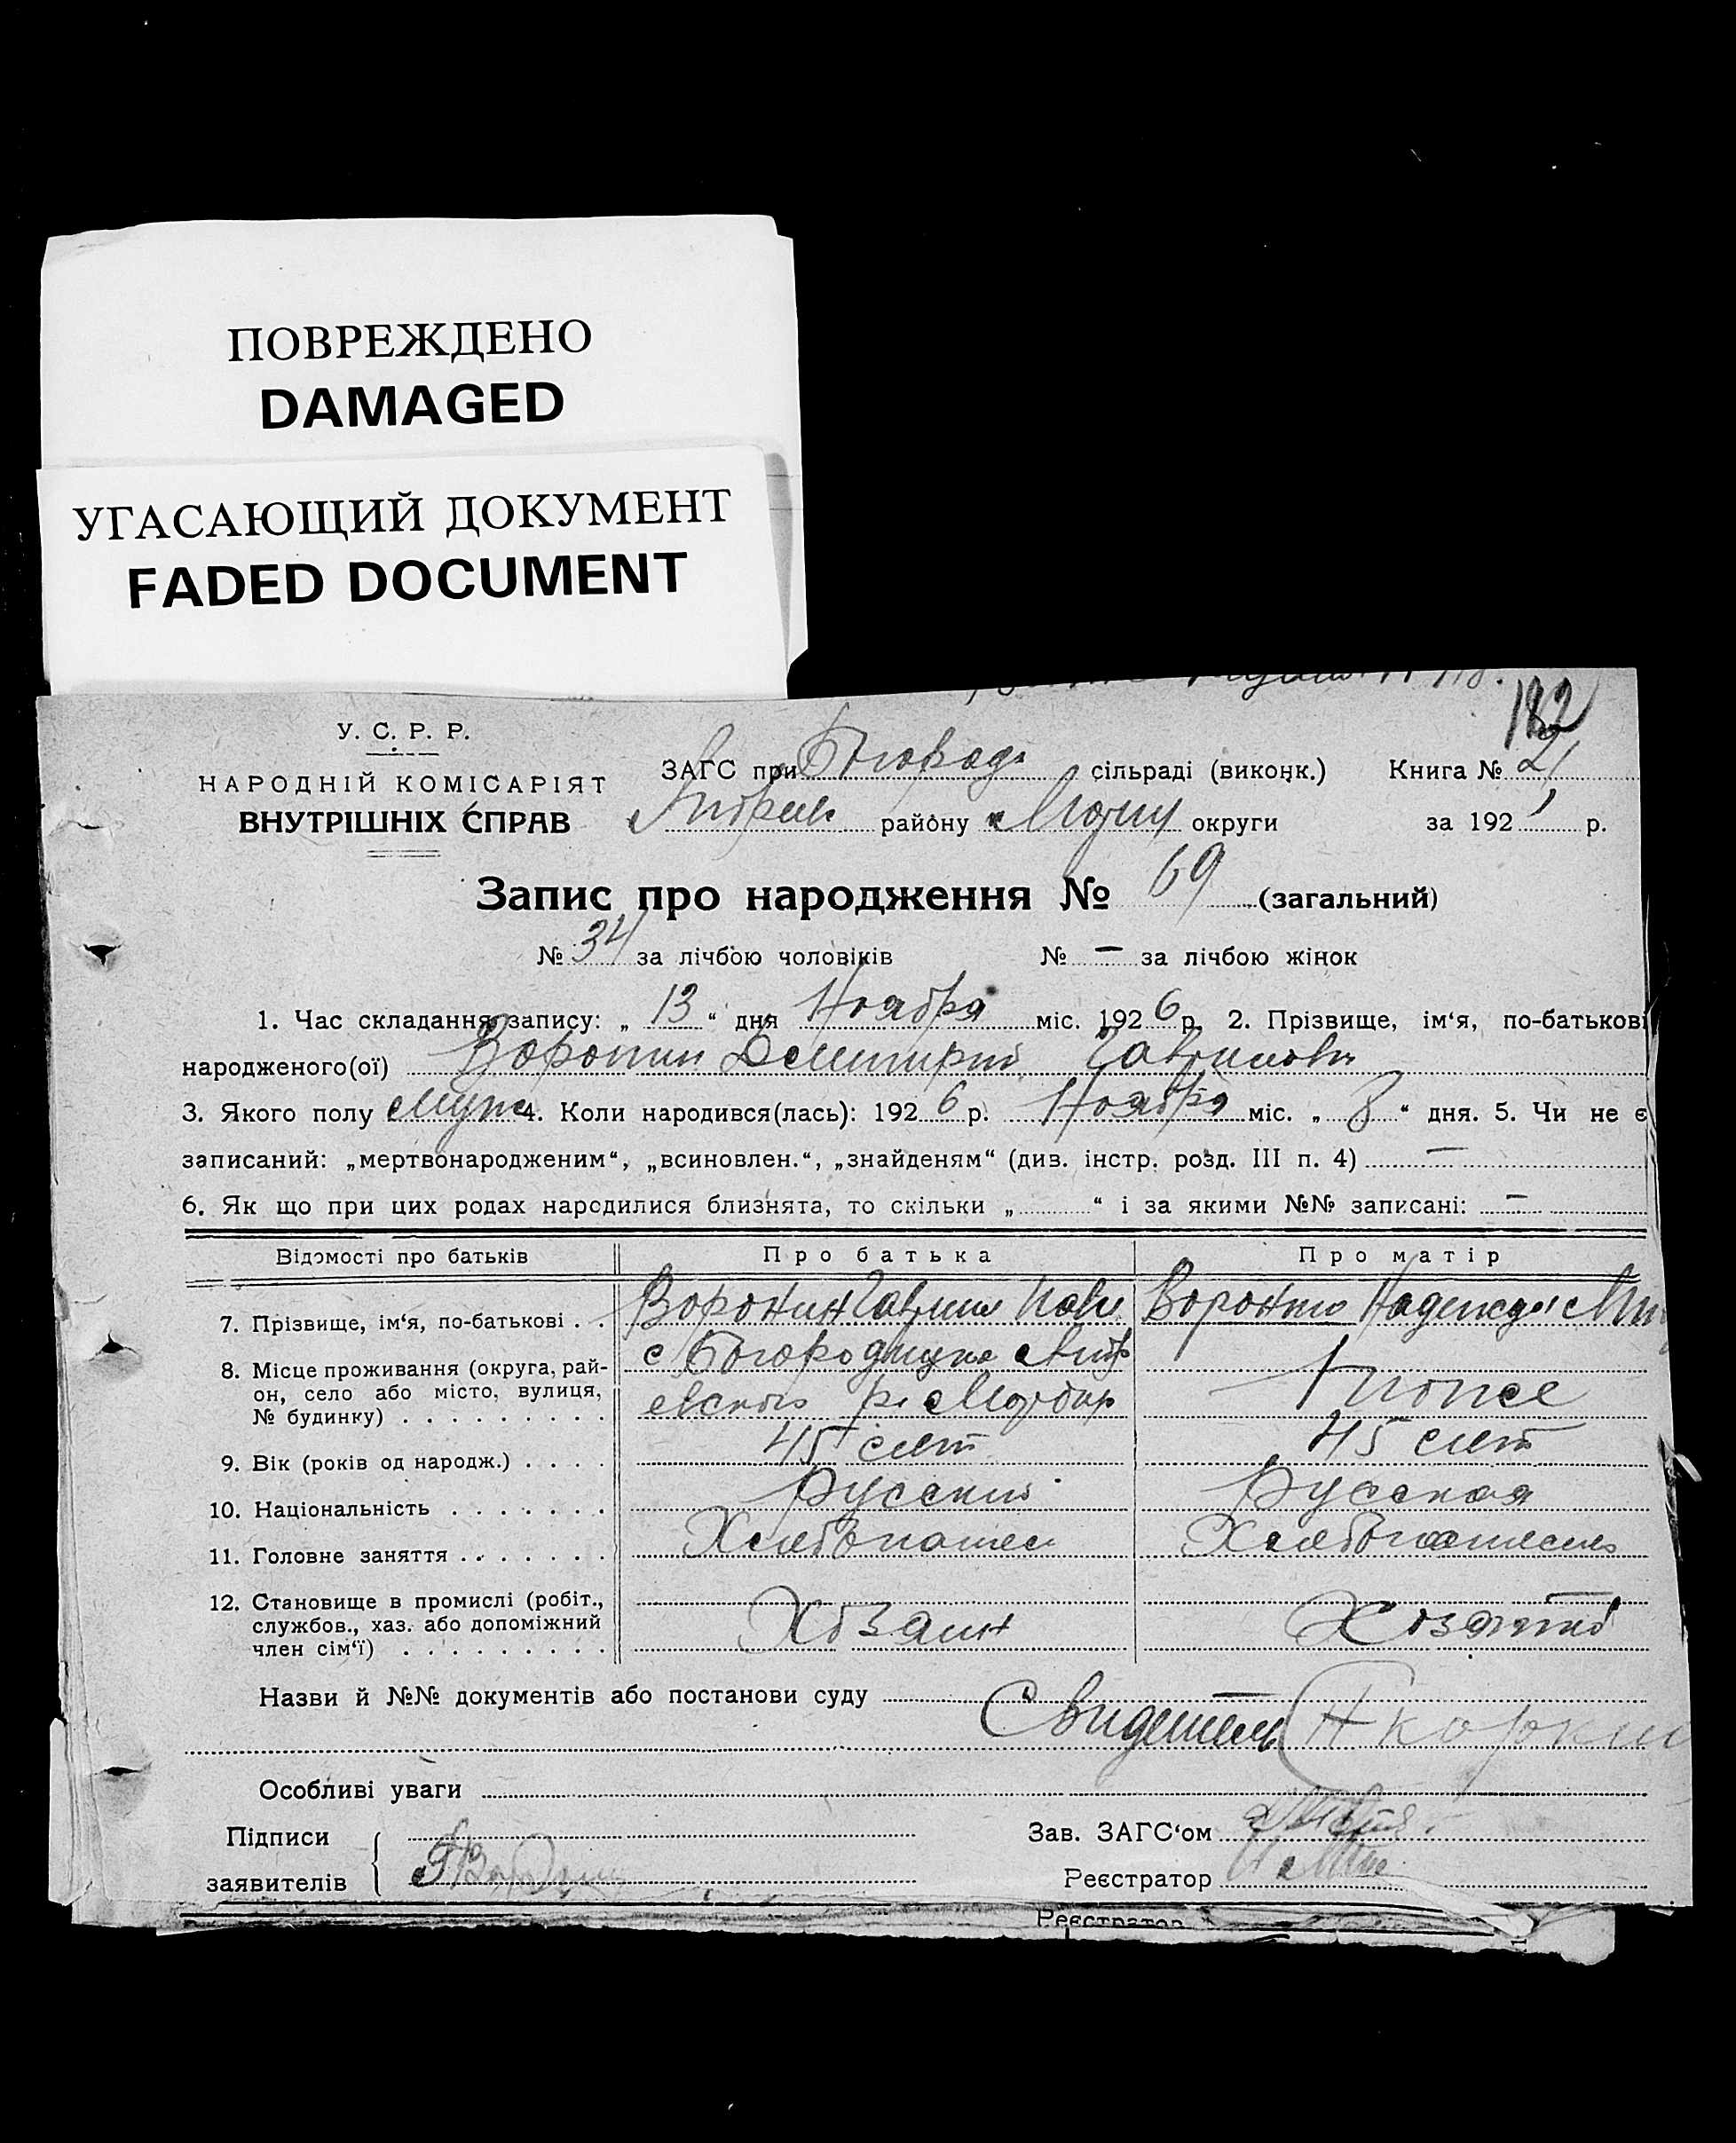 ПОВРЕЖДЕНО
DAMAGED
УГАСАЮЩИЙ ДОКУМЕНТ
FADED DOCUMENT
182
У. С. Р. Р.
НАРОДНІЙ КОМІСАРІЯТ
ВНУТРІШНІХ СПРАВ
ЗАГС при Богород. сільраді (виконк.) Книга № 2
району округи за 192 р.
Запис про народження № 69 (загальний)
№ 34 за лічбою чоловіків № — за лічбою жінок
1. Час складання запису: „ 13 “ дня Ноября міс. 1926 р. 2. Прізвище, ім‘я, по-батькові
народженого(ої) Воронин Демитрий Гаврилови
3. Якого полу Муж 4. Коли народився(лась): 1926 р. Ноября міс. „ 8 “ дня. 5. Чи не є
записаний: „мертвонародженим“, „всиновлен.“, „знайденям“ (див. інстр. розд. III п. 4) —
6. Як що при цих родах народилися близнята, то скільки „ “ і за якими №№ записані: —
Відомості про батьків Про батька Про матір
7. Прізвище, ім‘я, по-батькові . . Воронин Гаврил Павл Воронина Надежда Ми
8. Місце проживання (округа, рай-
он, село або місто, вулиця,
№ будинку) . . . . . . . . .
с Богородицка
Тоже
9. Вік (років од народж.) . . . . 45 лет 45 лет
10. Національність . . . . . . . Русский Русская
11. Головне заняття . . . . . . . Хлебопашец
12. Становище в промислі (робіт.,
службов., хаз. або допоміжний
член сім‘ї) . . . . . . . . .
Хозаин
Назви й №№ документів або постанови суду —
Свидетель
Особливі уваги
Підписи
заявителів
Зав. ЗАГС‘ом
Реєстратор
Реєстратор